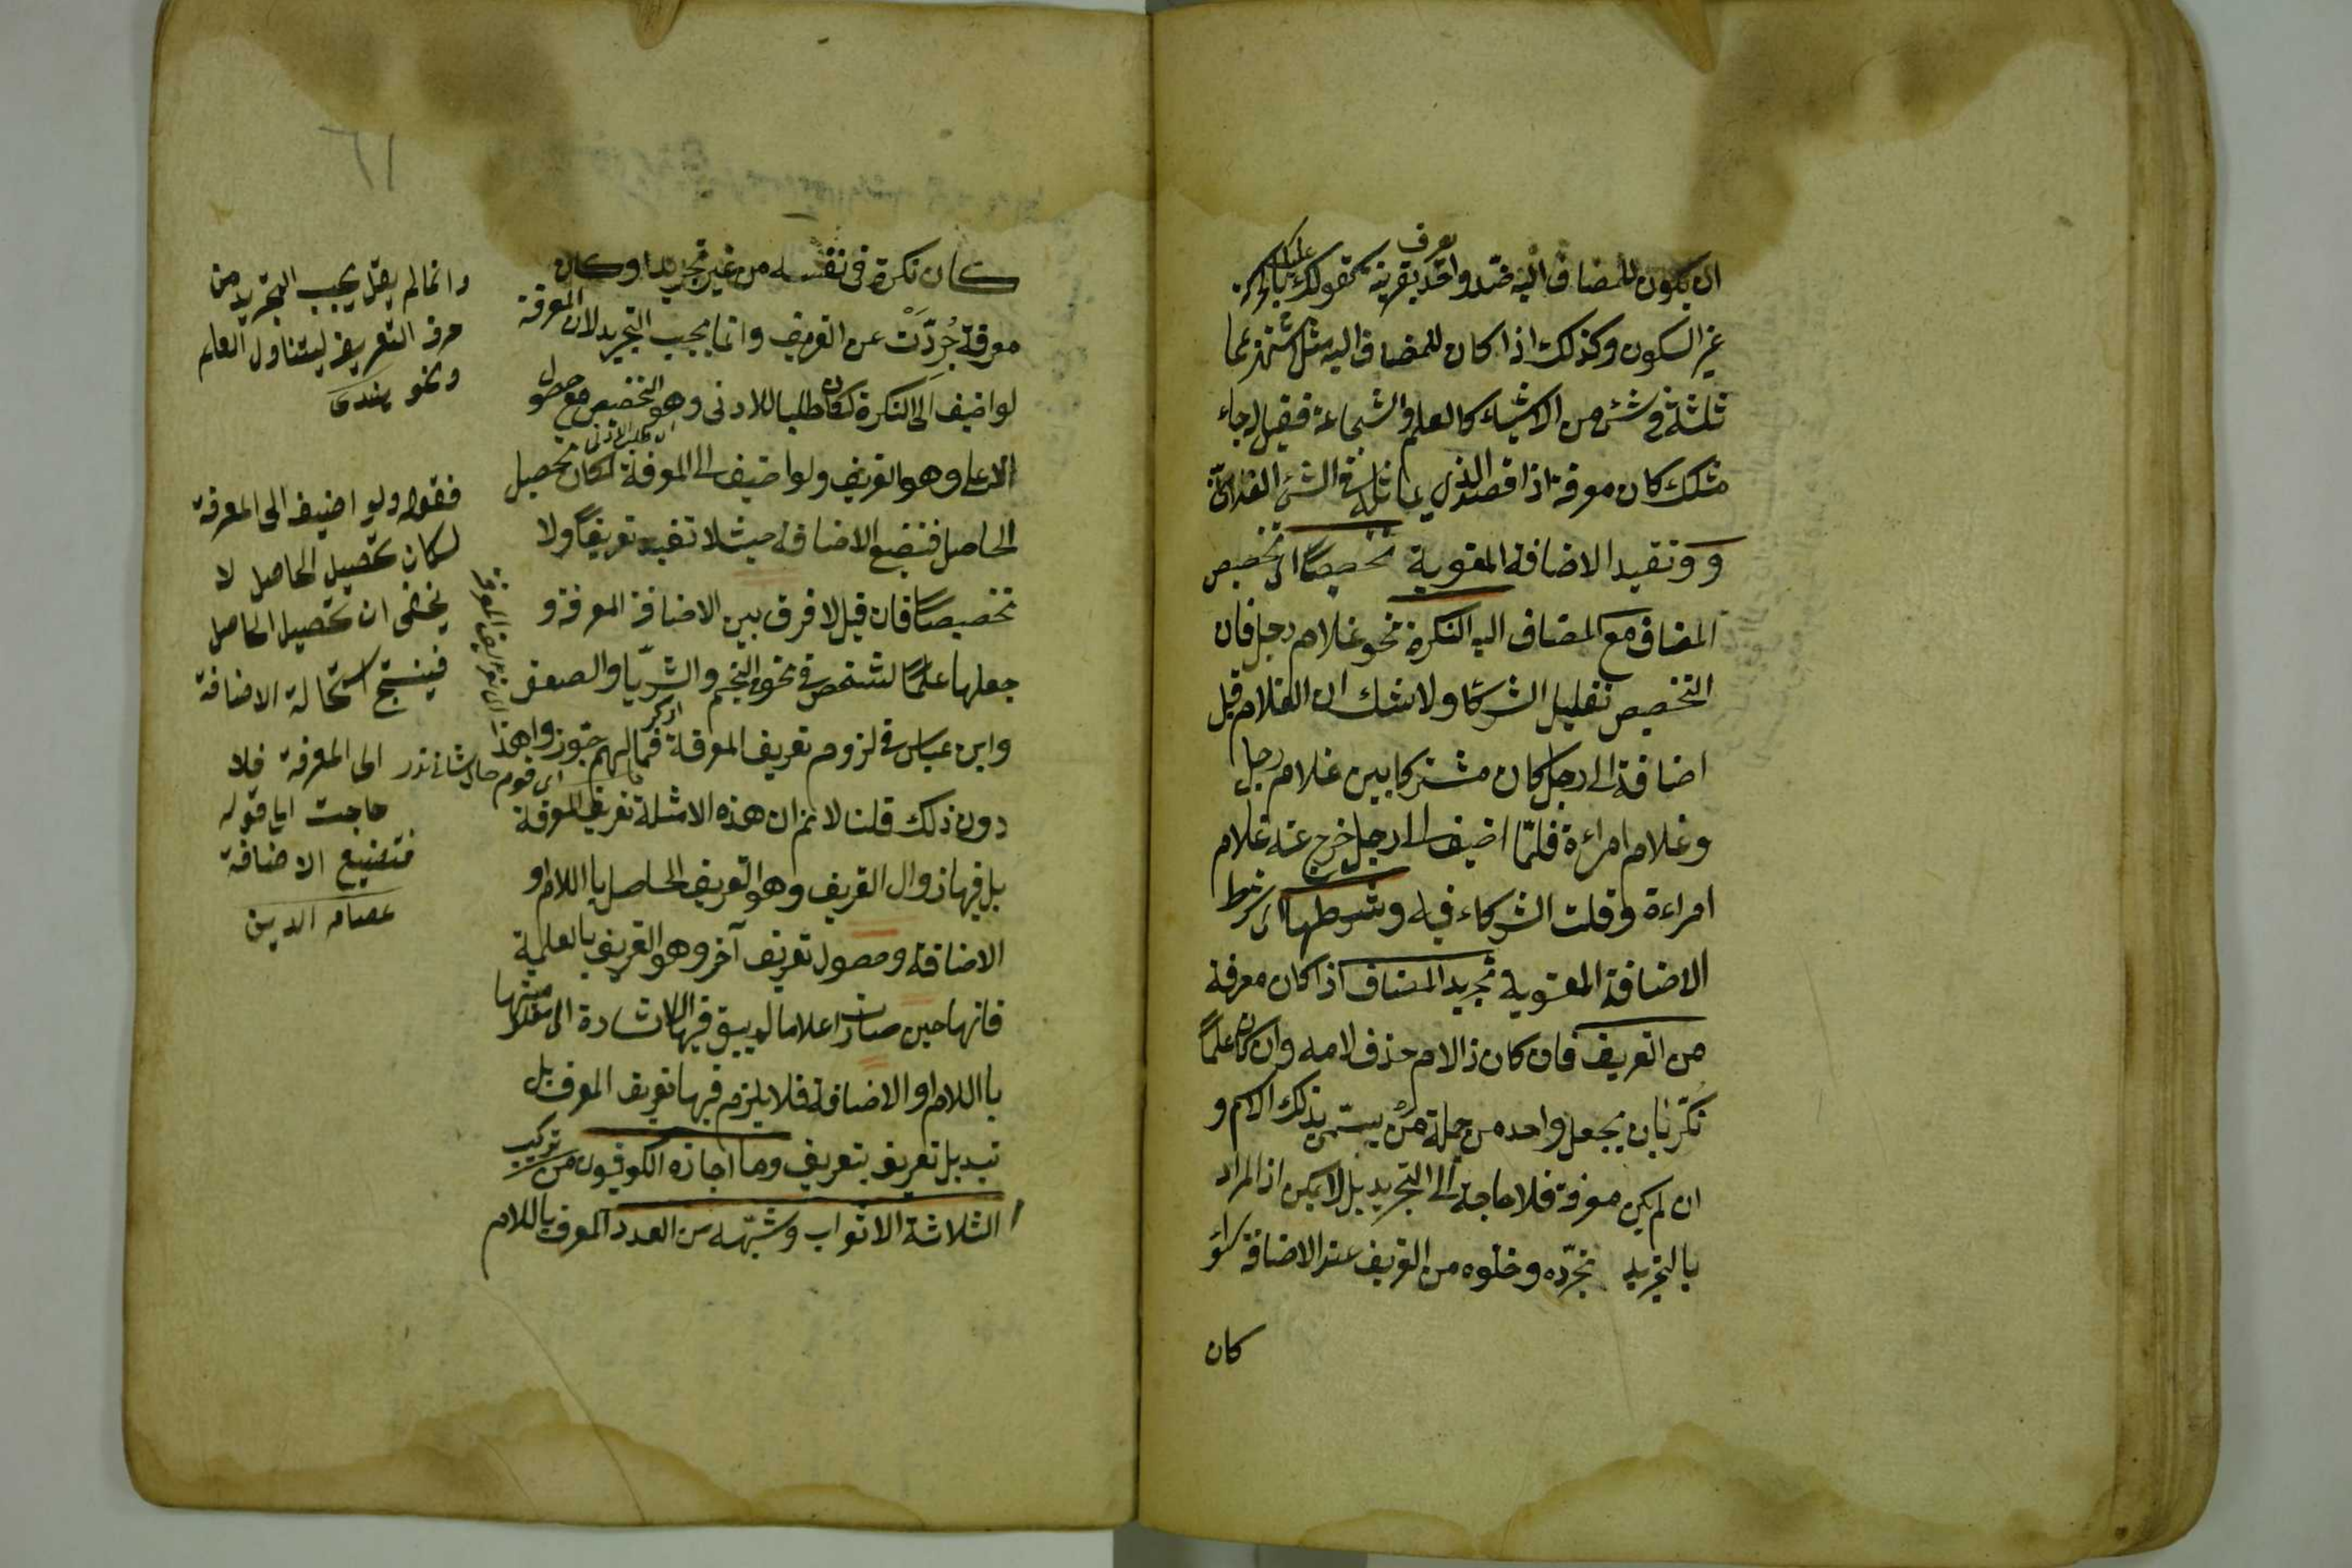 ان يكون للمضاف اليه ضد واحد يعرف بقرينة كقولك عليك بالحركة
غير السكون وكذلك اذا كان للمضاف اليه مثل اشتهر بمما
ثلثة في شئ من الاشياء كالعلم والشجاعة فقيل جاء
مثلك كان معرفة اذا قصد الذي يماثله في الشئ الفلانى
و وتفيد الاضافة المعنوية تخصيصًا اى تخصيص
المضاف مع المضاف اليه النكرة نحو غلام رجل فان
التخصيص تقليل الشركا ولا شك ان الغلام قبل
اضافة الى رجل كان مشتركا بين غلام رجل
وغلام امراءة فلمّا اضيف الى رجل خرج عنه غلام
امراءة وقلت الشركاء فيه وشرطها اى شرط
الاضافة المعنوية تجريد المضاف اذا كان معرفة
من التعريف فان كان ذا لام حذف لامه وان كان علمًا
نكّر بان يجعل واحد من جملة من يسمّى بذلك الاسم و
ان لم يكن معرفة فلا حاجة الى التجريد بل لا يمكن اذ المراد
بالتجريد تجرّده وخلوه من التعريف عند الاضافة سواء
كان
كان نكرة في نفسه من غير تجريد او كان
معرفة جُرِدَّتْ عن التعريف وانما يجب التجريد لان المعرفة
لو اضيف الى النكرة لكان طلبا للادنى وهو التخصيص مع حصول
الاعلى وهو التعريف ولو اضيف الى المعرفة لكان تحصيل
الحاصل فتضيع الاضافة حيث لا تفيد تعريفًا ولا
تخصيصًا فان قيل لا فرق بين الاضافة المعرفة و
جعلها علمًا لشخص في نحو النجم والثريّا والصعق
وابن عباس في لزوم تعريف المعرفة فما لهم جوزوا هذا
دون ذلك قلنا لا نم ان هذه الامثلة تعريف المعرفة
بل فيها زوال التعريف وهو التعريف الحاصل باللام او
الاضافة وحصول تعريف آخر وهو التعريف بالعلمية
فانها حين صارت اعلاما لم يبق فيها الاشارة الى معلوميتها
باللام او الاضافة فلا يلزم فيها تعريف المعرف بل
تبديل تعريف بتعريف وما اجازه الكوفيون من تركيب
الثلاثة الاثواب وشبهه من العدد المعرف باللام
وانما لم يقل يجب التجريد من
حرف التعريف ليتناول العلم
ونحو
فقوله ولو اضيف الى المعرفة
لكان تحصيل الحاصل لا
يخفى ان تحصيل الحاصل
فينتج استحالة الاضافة
الى المعرفة فلا
حاجت ايا قوله
فتضيع الاضافة
عصام الدين